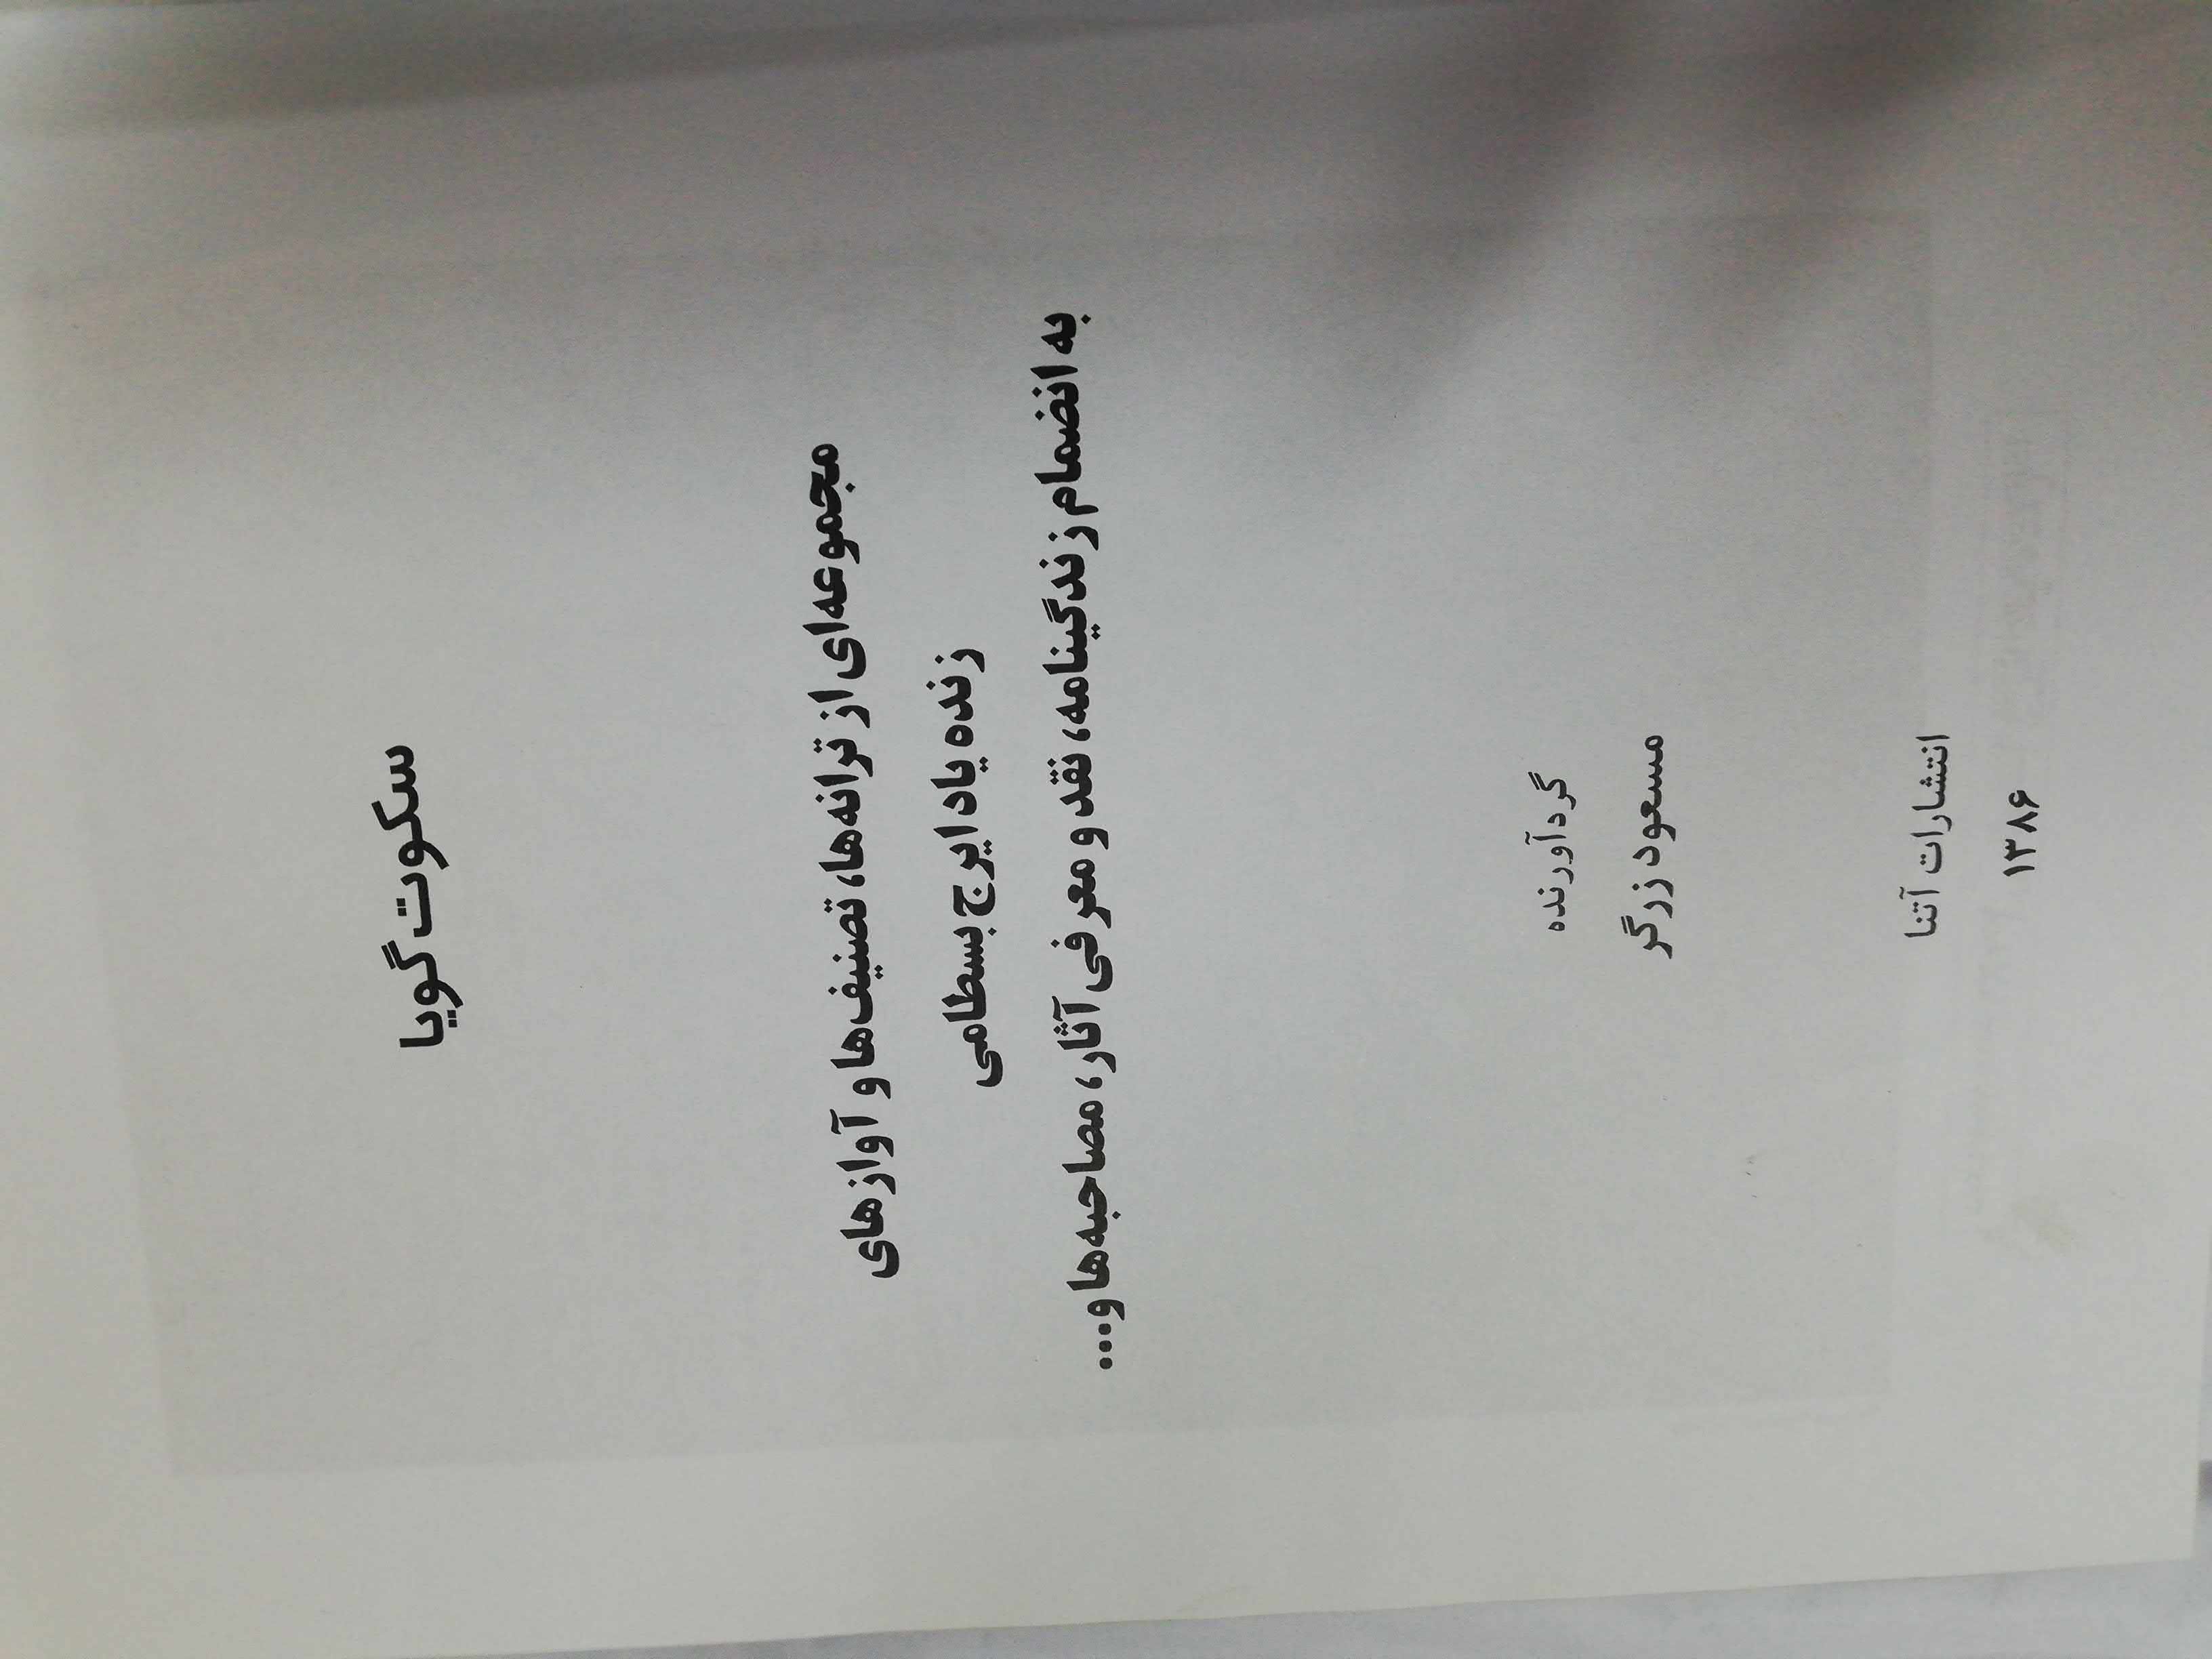 سکوت گویا
مجموعه‌ای از ترانه‌ها، تصنیف‌ها و آوازهای
زنده یاد ایرج بسطامی
به انضمام زندگینامه، نقد و معرفی آثار، مصاحبه‌ها و...
گردآورنده
مسعود زرگر
انتشارات آتنا
۱۳۸۶